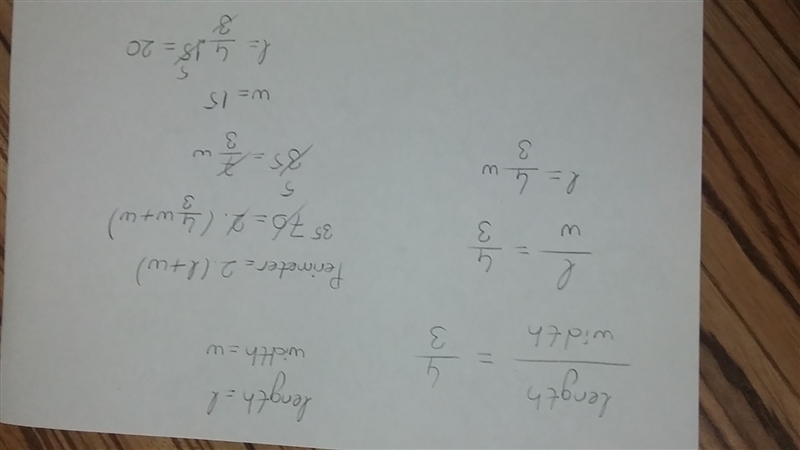 length/width = 4/3
l/w = 4/3
l = 4/3 w
length = l
width = w
Perimeter = 2.(l+w)
35 70 = 2.(4/3 w+w)
5
35 = 7/3 w
w = 15
5
l = 4/3 . 15 = 20